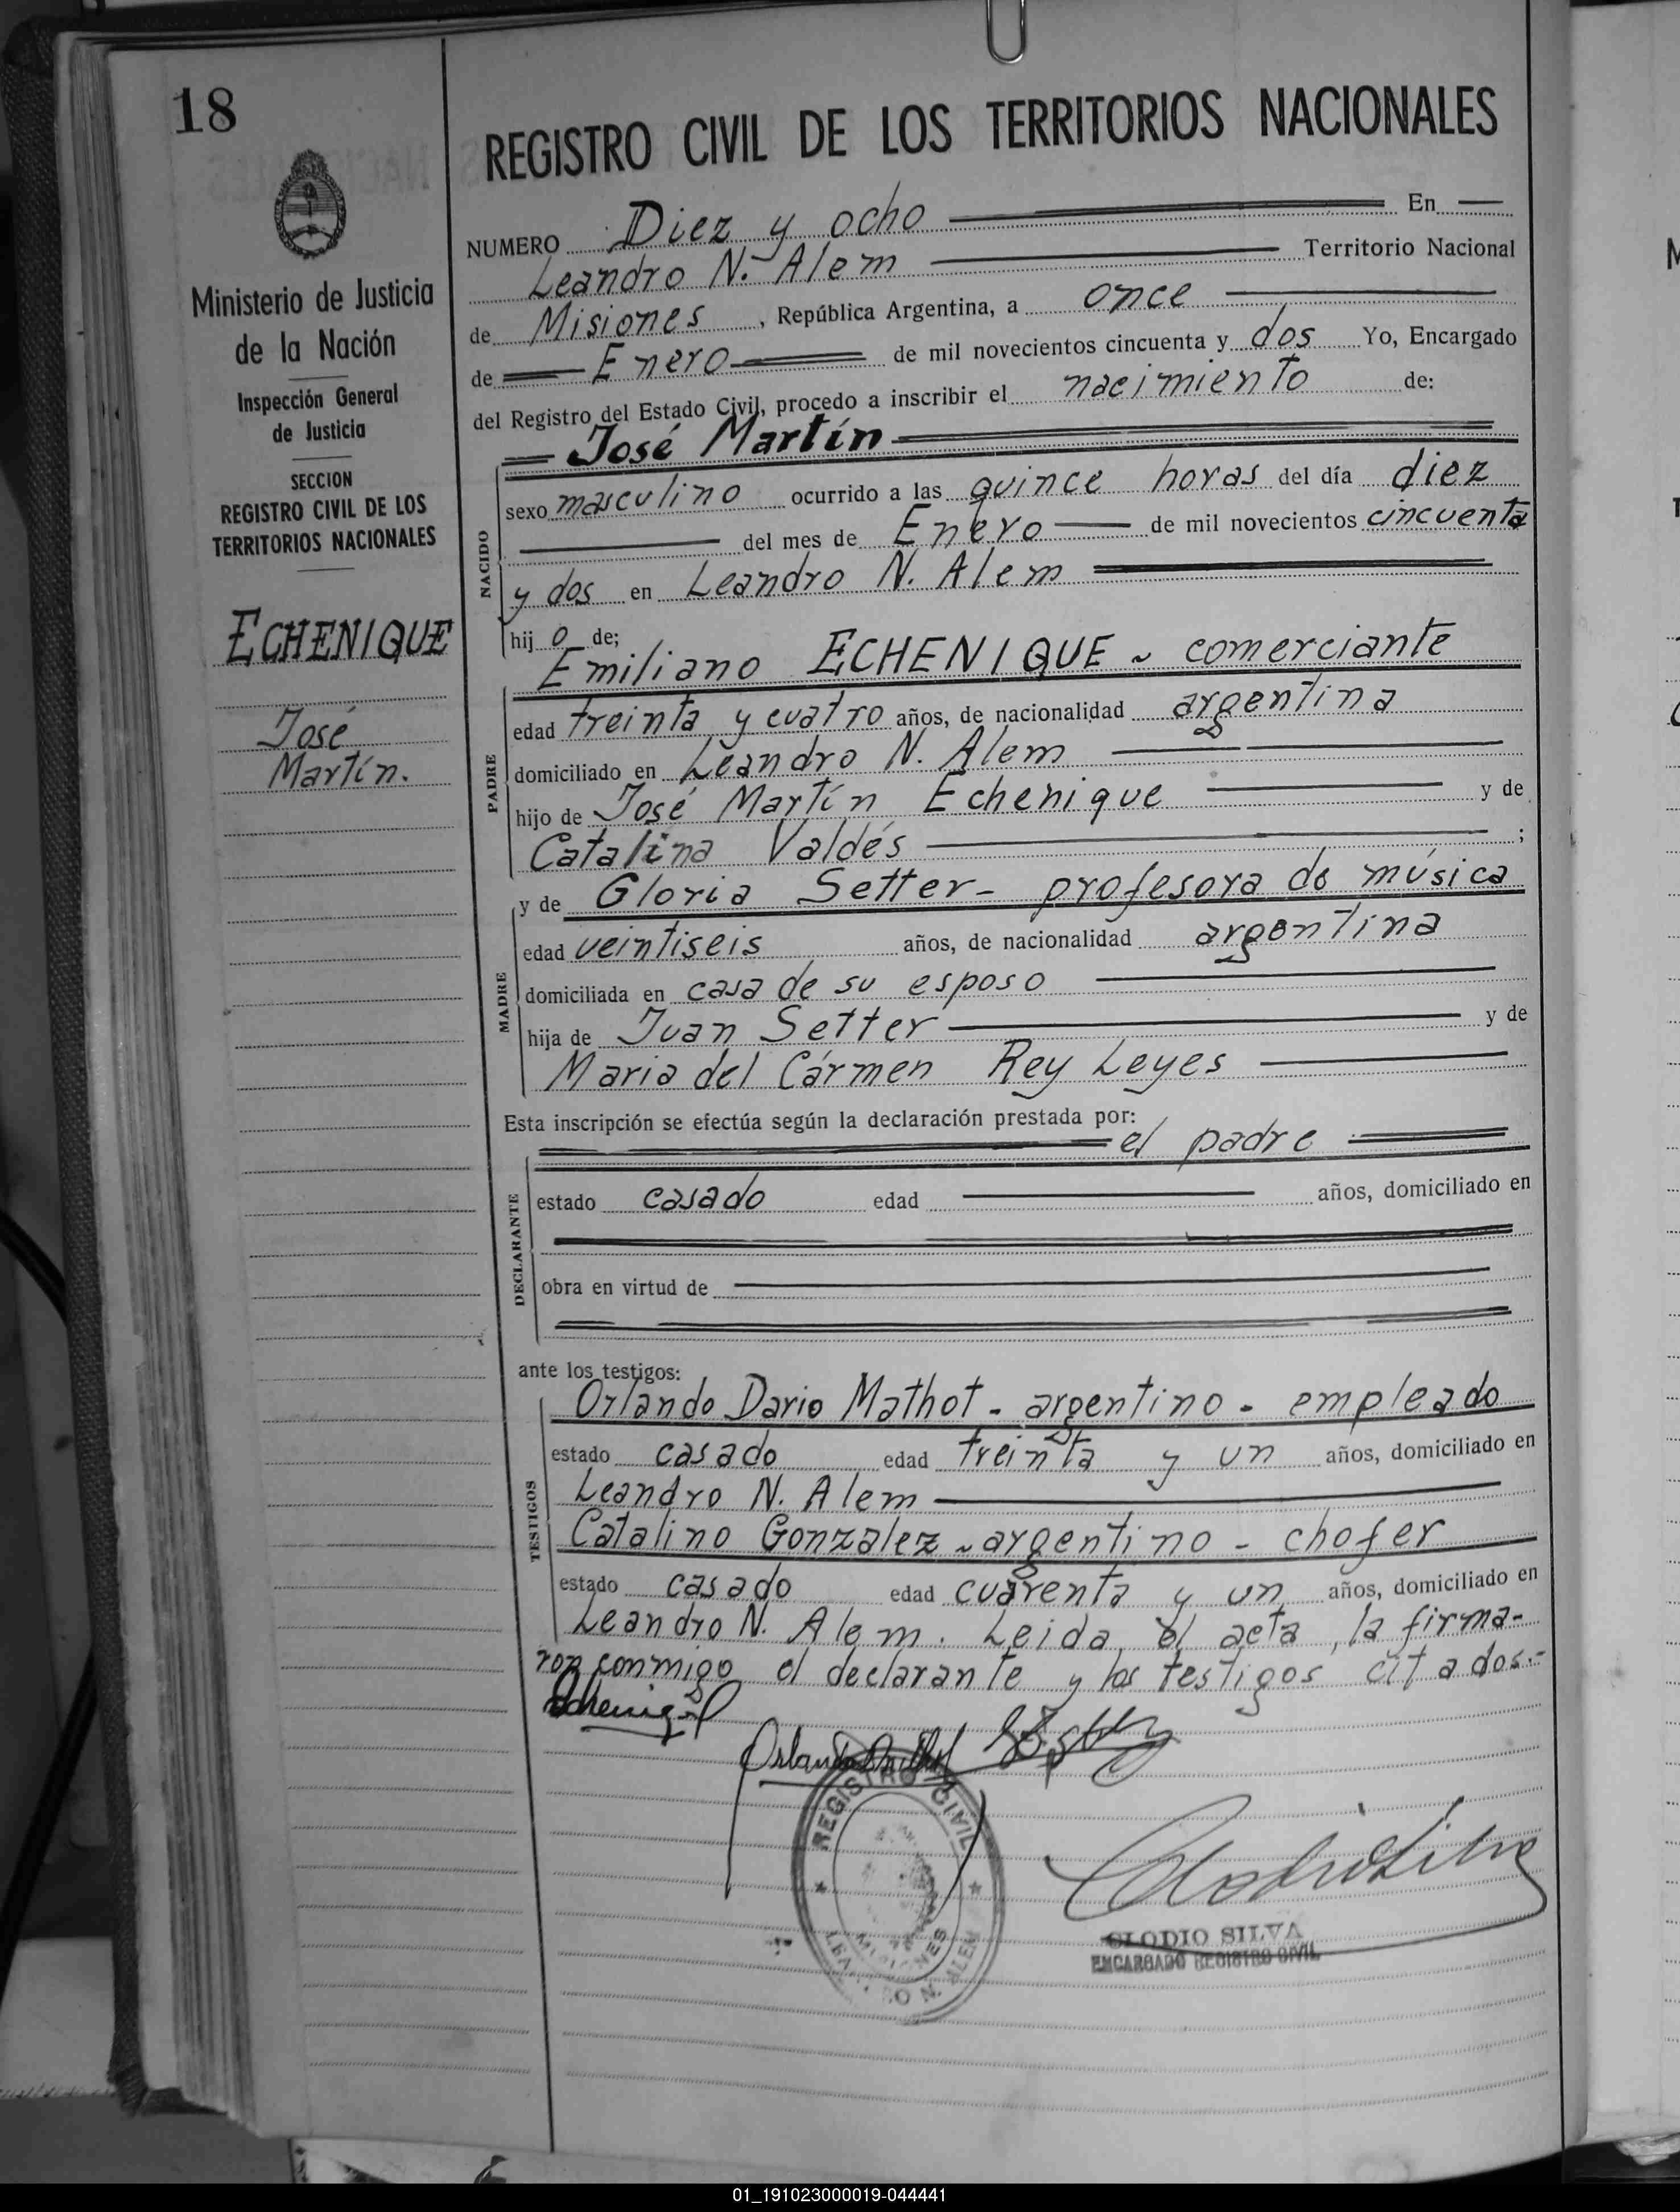 18
REGISTRO CIVIL DE LOS TERRITORIOS NACIONALES
Ministerio de Justicia
de la Nación
Inspección General
de Justicia
SECCION
REGISTRO CIVIL DE LOS
TERRITORIOS NACIONALES
ECHENIQUE
José
Martín.
NUMERO Diez y ocho En
Leandro N. Alem Territorio Nacional
de Misiones, República Argentina, a once
de Enero de mil novecientos cincuenta y dos Yo, Encargado
del Registro del Estado Civil, procedo a inscribir el nacimiento de:
José Martín
NACIDO
sexo masculino ocurrido a las quince horas del día diez
del mes de Enero de mil novecientos cincuenta
y dos en Leandro N. Alem
hij o de;
Emiliano ECHENIQUE - comerciante
PADRE
edad treinta y cuatro años, de nacionalidad argentina
domiciliado en Leandro N. Alem
hijo de José Martín Echenique y de
Catalina Valdés ;
y de Gloria Setter - profesora de música
MADRE
edad veintiseis años, de nacionalidad argentina
domiciliada en casa de su esposo
hija de Juan Setter y de
Maria del Cármen Rey Leyes
Esta inscripción se efectúa según la declaración prestada por:
el padre
DECLARANTE
estado casado edad años, domiciliado en
obra en virtud de
ante los testigos:
Orlando Dario Mathot - argentino - empleado
TESTIGOS
estado casado edad treinta y un años, domiciliado en
Leandro N. Alem
Catalino Gonzalez - argentino - chofer
estado casado edad cuarenta y un años, domiciliado en
Leandro N. Alem. Leida el acta, la firma-
ron conmigo el declarante y los testigos citados.-
REGISTRO CIVIL
MISIONES
N. ALEM
CLODIO SILVA
ENCARGADO REGISTRO CIVIL
01_191023000019-044441